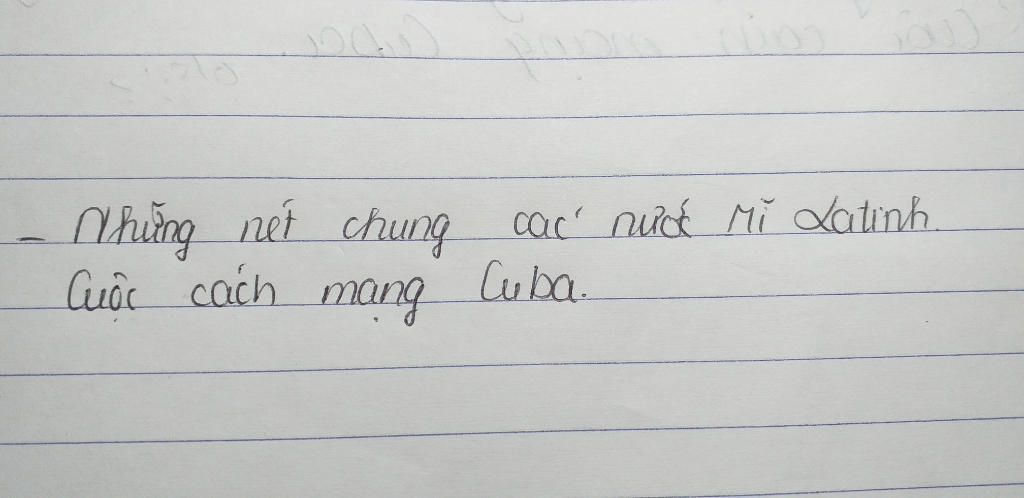 - Những nét chung các nước Mĩ Latinh.
Cuộc cách mạng Cuba.